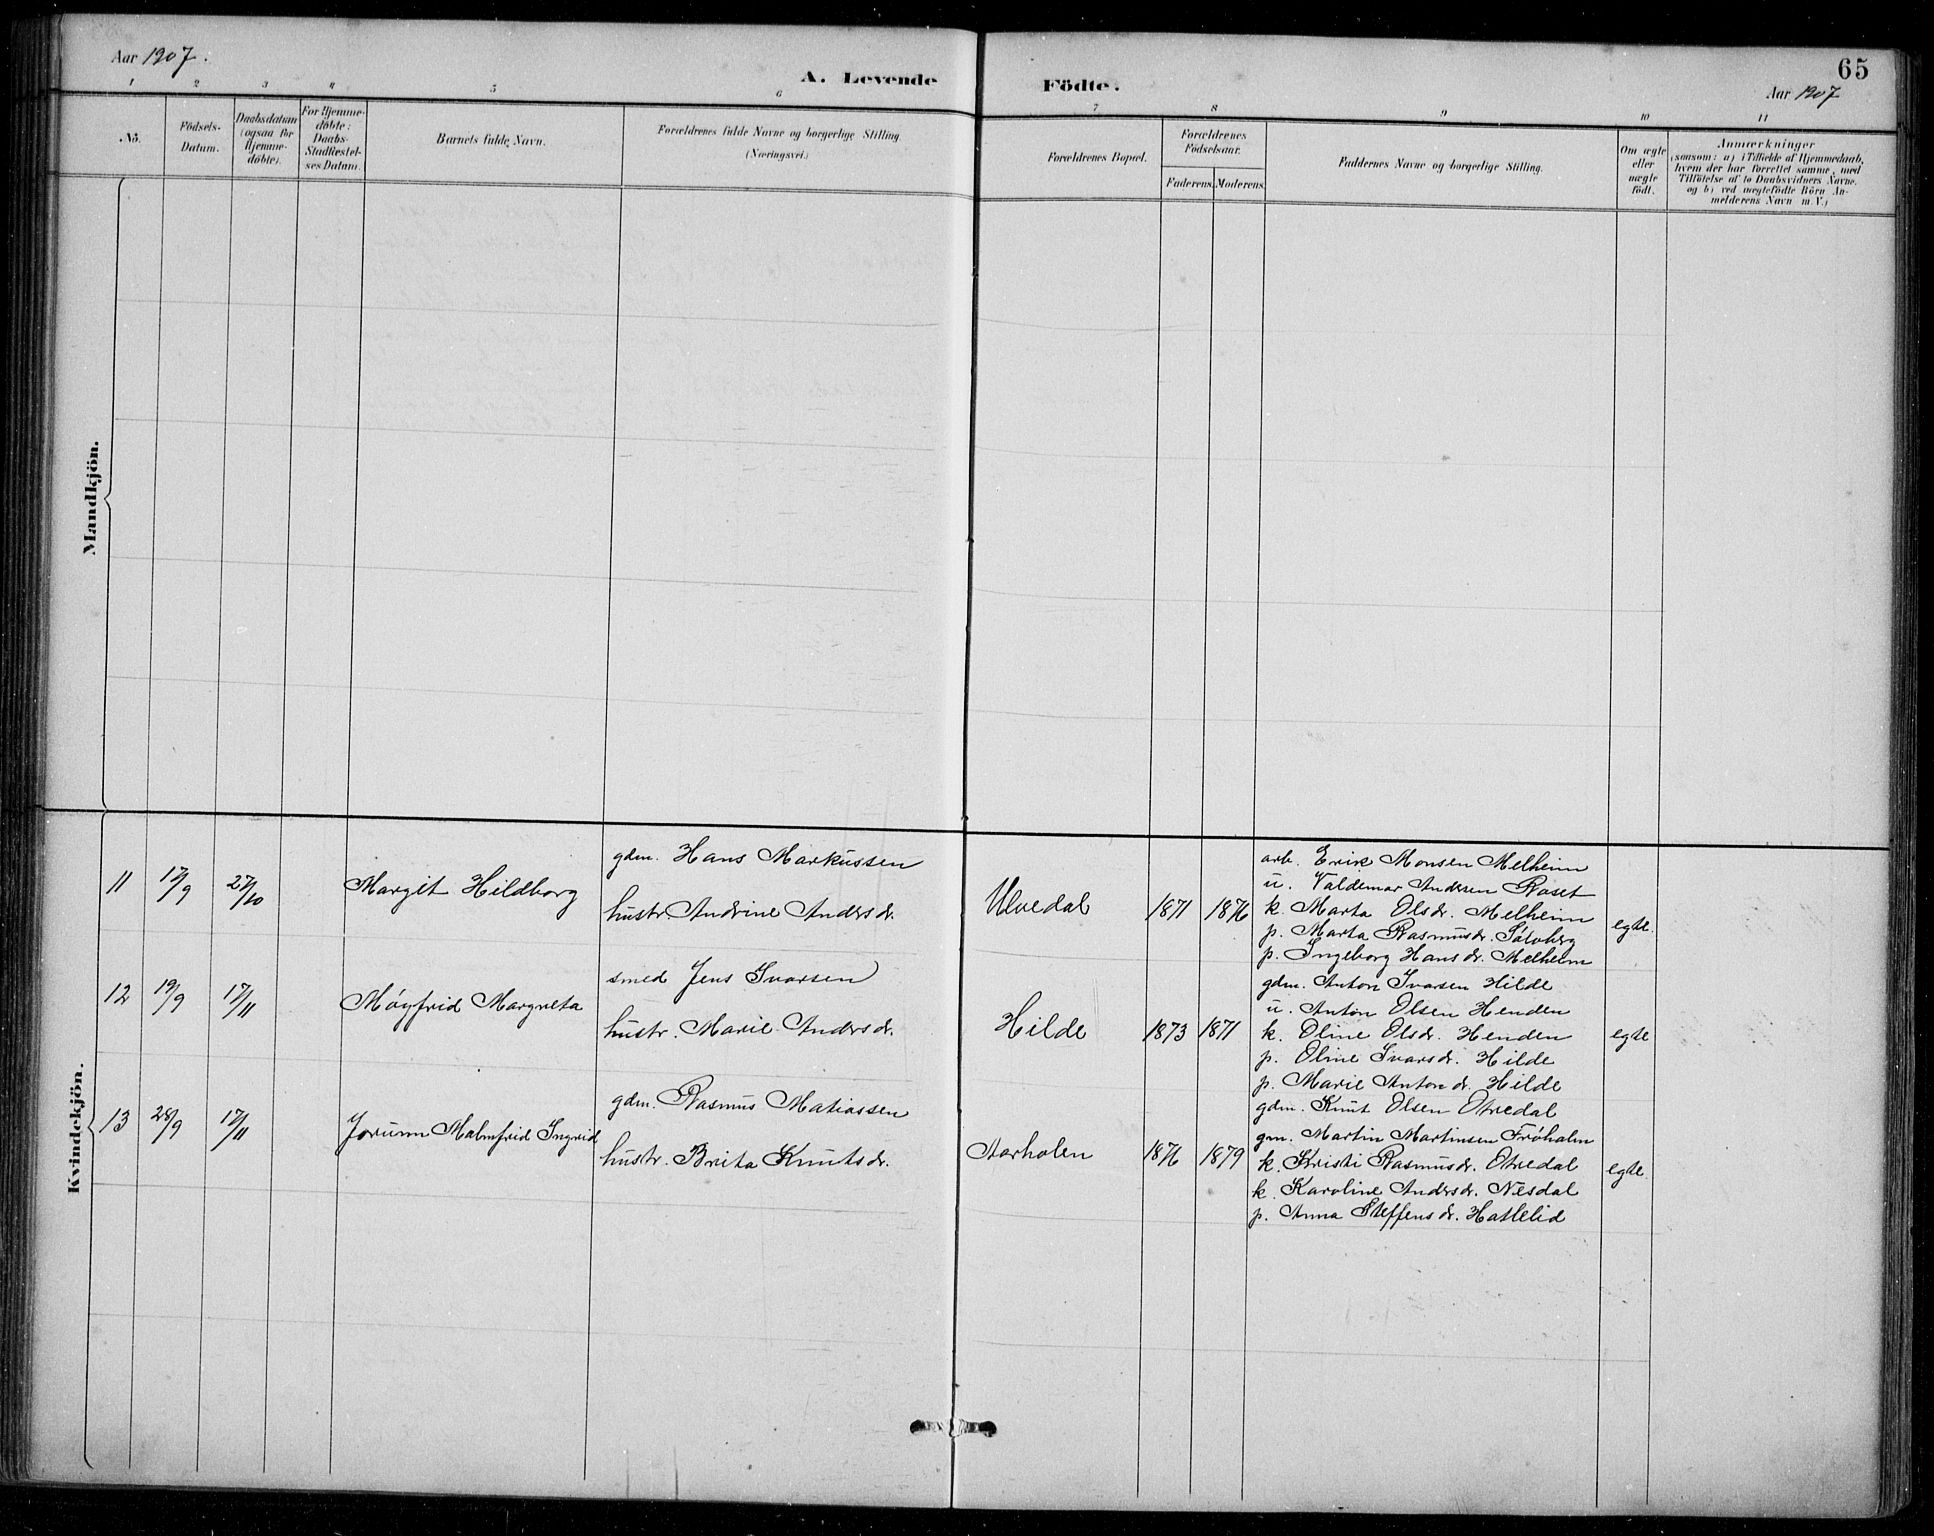 Aar 1907.
A. Levende Födte.
65
Aar 1907
1 2 3 4 5 6 7 8 9 10 11
No.
Födsels-
Datum.
Daabsdatum
(ogsaa for
Hjemme-
döbte).
For Hjemme-
döbte:
Daabs-
Stadfæstel-
ses Datum.
Barnets fulde Navn.
Forældrenes fulde Navne og borgerlige Stilling.
(Næringsvei.)
Forældrenes Bopæl.
Forældrenes
Födselsaar.
Faderens. Moderens.
Faddernes Navne og borgerlige Stilling.
Om ægte
eller
uægte
født.
Anmærkninger
(saasom: a) i Tilfælde af Hjemmedaab,
hvem der har forrettet samme, med
Tilföielse af to Daabsvidners Navne.
og b) ved uægtefödte Börn An-
melderens Navn m. V.)
Mandkjön.
Kvindekjön.
11 17/9 27/10 Margit Hildborg
gdm. Hans Markussen
hustr. Andrine Andersdr.
Ulvedal 1871 1876
arb. Erik Monsen Melheim
u. Valdemar Andersen Roset
k. Marta Olsdr. Melheim
p. Marta Rasmusdr. Sølvberg
p. Ingeborg Hansdr. Melheim
egte.
12 19/9 17/11 Møyfrid Margreta
smed Jens Ivarsen
hustr. Marie Andersdr.
Hilde 1873 1871
gdm. Anton Ivarsen Hilde
u. Anton Olsen Henden
k. Oline Olsdr. Henden
p. Oline Ivarsdr. Hilde
p. Marie Antondr. Hilde
egte
13 28/9 17/11 Jorunn Malmfrid Ingrid
gdm. Rasmus Matiassen
hustr. Brita Knutsdr.
Aarholen 1876 1879
gdm. Knut Olsen Otredal
gm. Martin Martinsen Frøholm
k. Kristi Rasmusdr. Otredal
k. Karoline Andersdr. Nesdal
p. Anna Steffensdr. Hatlelid
egte